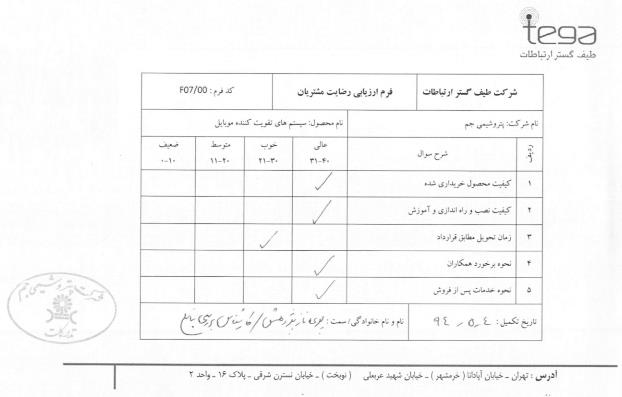 tega
طیف گستر ارتباطات
شرکت طیف گستر ارتباطات
فرم ارزیابی رضایت مشتریان
کد فرم : F07/00
نام شرکت: پتروشیمی جم
نام محصول: سیستم های تقویت کننده موبایل
ردیف
شرح سوال
عالی
۳۱-۴۰
خوب
۲۱-۳۰
متوسط
۱۱-۲۰
ضعیف
۰-۱۰
۱ کیفیت محصول خریداری شده
۲ کیفیت نصب و راه اندازی و آموزش
۳ زمان تحویل مطابق قرارداد
۴ نحوه برخورد همکاران
۵ نحوه خدمات پس از فروش
نام و نام خانوادگی/سمت :
تاریخ تکمیل : ۹٤-٥-٤
آدرس : تهران - خیابان آپادانا ( خرمشهر ) - خیابان شهید عربعلی ( نوبخت ) - خیابان نسترن شرقی - پلاک ۱۶ - واحد ۲